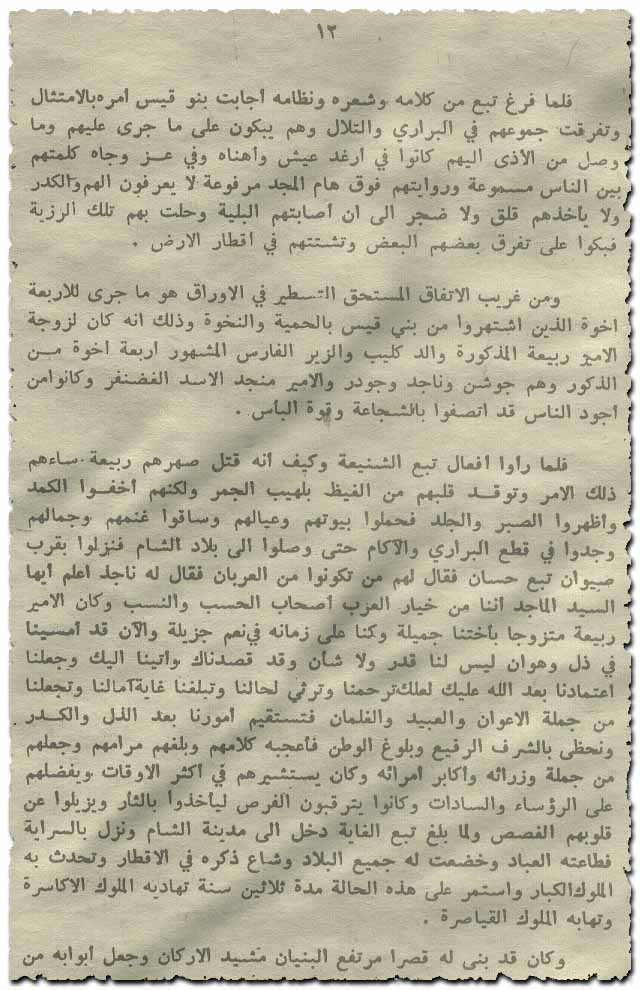 ١٢
فلما فرغ تبع من كلامه وشعره ونظامه أجابت بنو قيس أمره بالامتثال
وتفرقت جموعهم في البراري والتلال وهم يبكون على ما جرى عليهم وما
وصل من الأذى اليهم كانوا في أرغد عيش وأهناه وفي عـز وجاه كلمتهم
بين الناس مسموعة وروايتهم فوق هام المجد مرفوعة لا يعرفون الهم والكدر
ولا يأخذهم قلق ولا ضجر الى ان أصابتهم البلية وحلت بهم تلك الرزية
فبكوا على تفرق بعضهم البعض وتشتتهم في أقطار الارض .
ومن غريب الاتفاق المستحق التسطير في الاوراق هو ما جرى للاربعة
اخوة الذين اشتهروا من بني قيس بالحمية والنخوة وذلك انه كان لزوجة
الامير ربيعة المذكورة والد كليب والزير الفارس المشهور اربعة اخوة مـن
الذكور وهم جوشن وناجد وجودر والامير منجد الاسد الغضنفر وكانوا من
اجود الناس قد اتصفوا بالشجاعة وقوة البأس .
فلما رأوا أفعال تبع الشنيعة وكيف أنه قتل صهرهم ربيعة ساءهم
ذلك الامر وتوقـد قلبهم من الغيظ بلهيب الجمر ولكنهم أخفـوا الكمد
وأظهروا الصبر والجلد فحملوا بيوتهم وعيالهم وساقوا غنمهم وجمالهم
وجدوا في قطع البراري والآكام حتى وصلوا الى بلاد الشام فنزلوا بقرب
صيوان تبع حسان فقال لهم من تكونوا من العربان فقال له ناجد اعلم أيها
السيد الماجد أننا من خيار العرب أصحاب الحسب والنسب وكان الامير
ربيعة متزوجا بأختنا جميلة وكنا على زمانه في نعم جزيلة والآن قد أمسينا
في ذل وهوان ليس لنا قدر ولا شأن وقد قصدناك وأتينا اليك وجعلنا
اعتمادنا بعد الله عليك لعلك ترحمنا وترثي لحالنا وتبلغنا غاية آمالنا وتجعلنا
من جملة الاعوان والعبيد والغلمان فتستقيم أمورنا بعد الذل والكـدر
ونحظى بالشرف الرفيع وبلوغ الوطن فأعجبه كلامهم وبلغهم مرامهم وجعلهم
من جملة وزرائه وأكابر أمرائه وكان يستشيرهم في أكثر الاوقات ويفضلهم
على الرؤساء والسادات وكانوا يترقبون الفرص ليأخذوا بالثار ويزيلوا عن
قلوبهم الغصص ولما بلغ تبع الغاية دخل الى مدينة الشام ونزل بالسراية
فطاعته العباد وخضعت له جميع البلاد وشاع ذكره في الاقطار وتحدث به
الملوك الكبار واستمر على هذه الحالة مدة ثلاثين سنة تهاديه الملوك الاكاسرة
وتهابه الملوك القياصرة .
وكان قد بنى له قصرا مرتفع البنيان مشيد الاركان وجعل أبوابه من